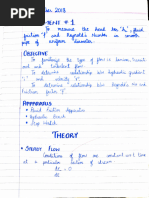 2018
# 1
To measure the head loss "hL", fluid
friction "f" and Reynold's Number in smooth
pipe of uniform diameter.
OBJECTIVE
To familiarize the type of flow i.e. laminar, transit
and turbulent flow
To determine relationship b/w hydraulic gradient
"i" & velocity "v"
To determine relationship b/w Reynold's no. and
friction factor "f".
APPARATUS
Fluid Friction Apparatus
Hydraulic Bench
Stop Watch
THEORY
STEADY FLOW
Conditions of flow are constant with time
at a particular section of stream.
= 0